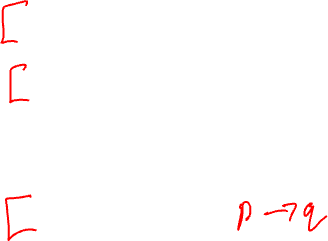 [
[
[ p → q